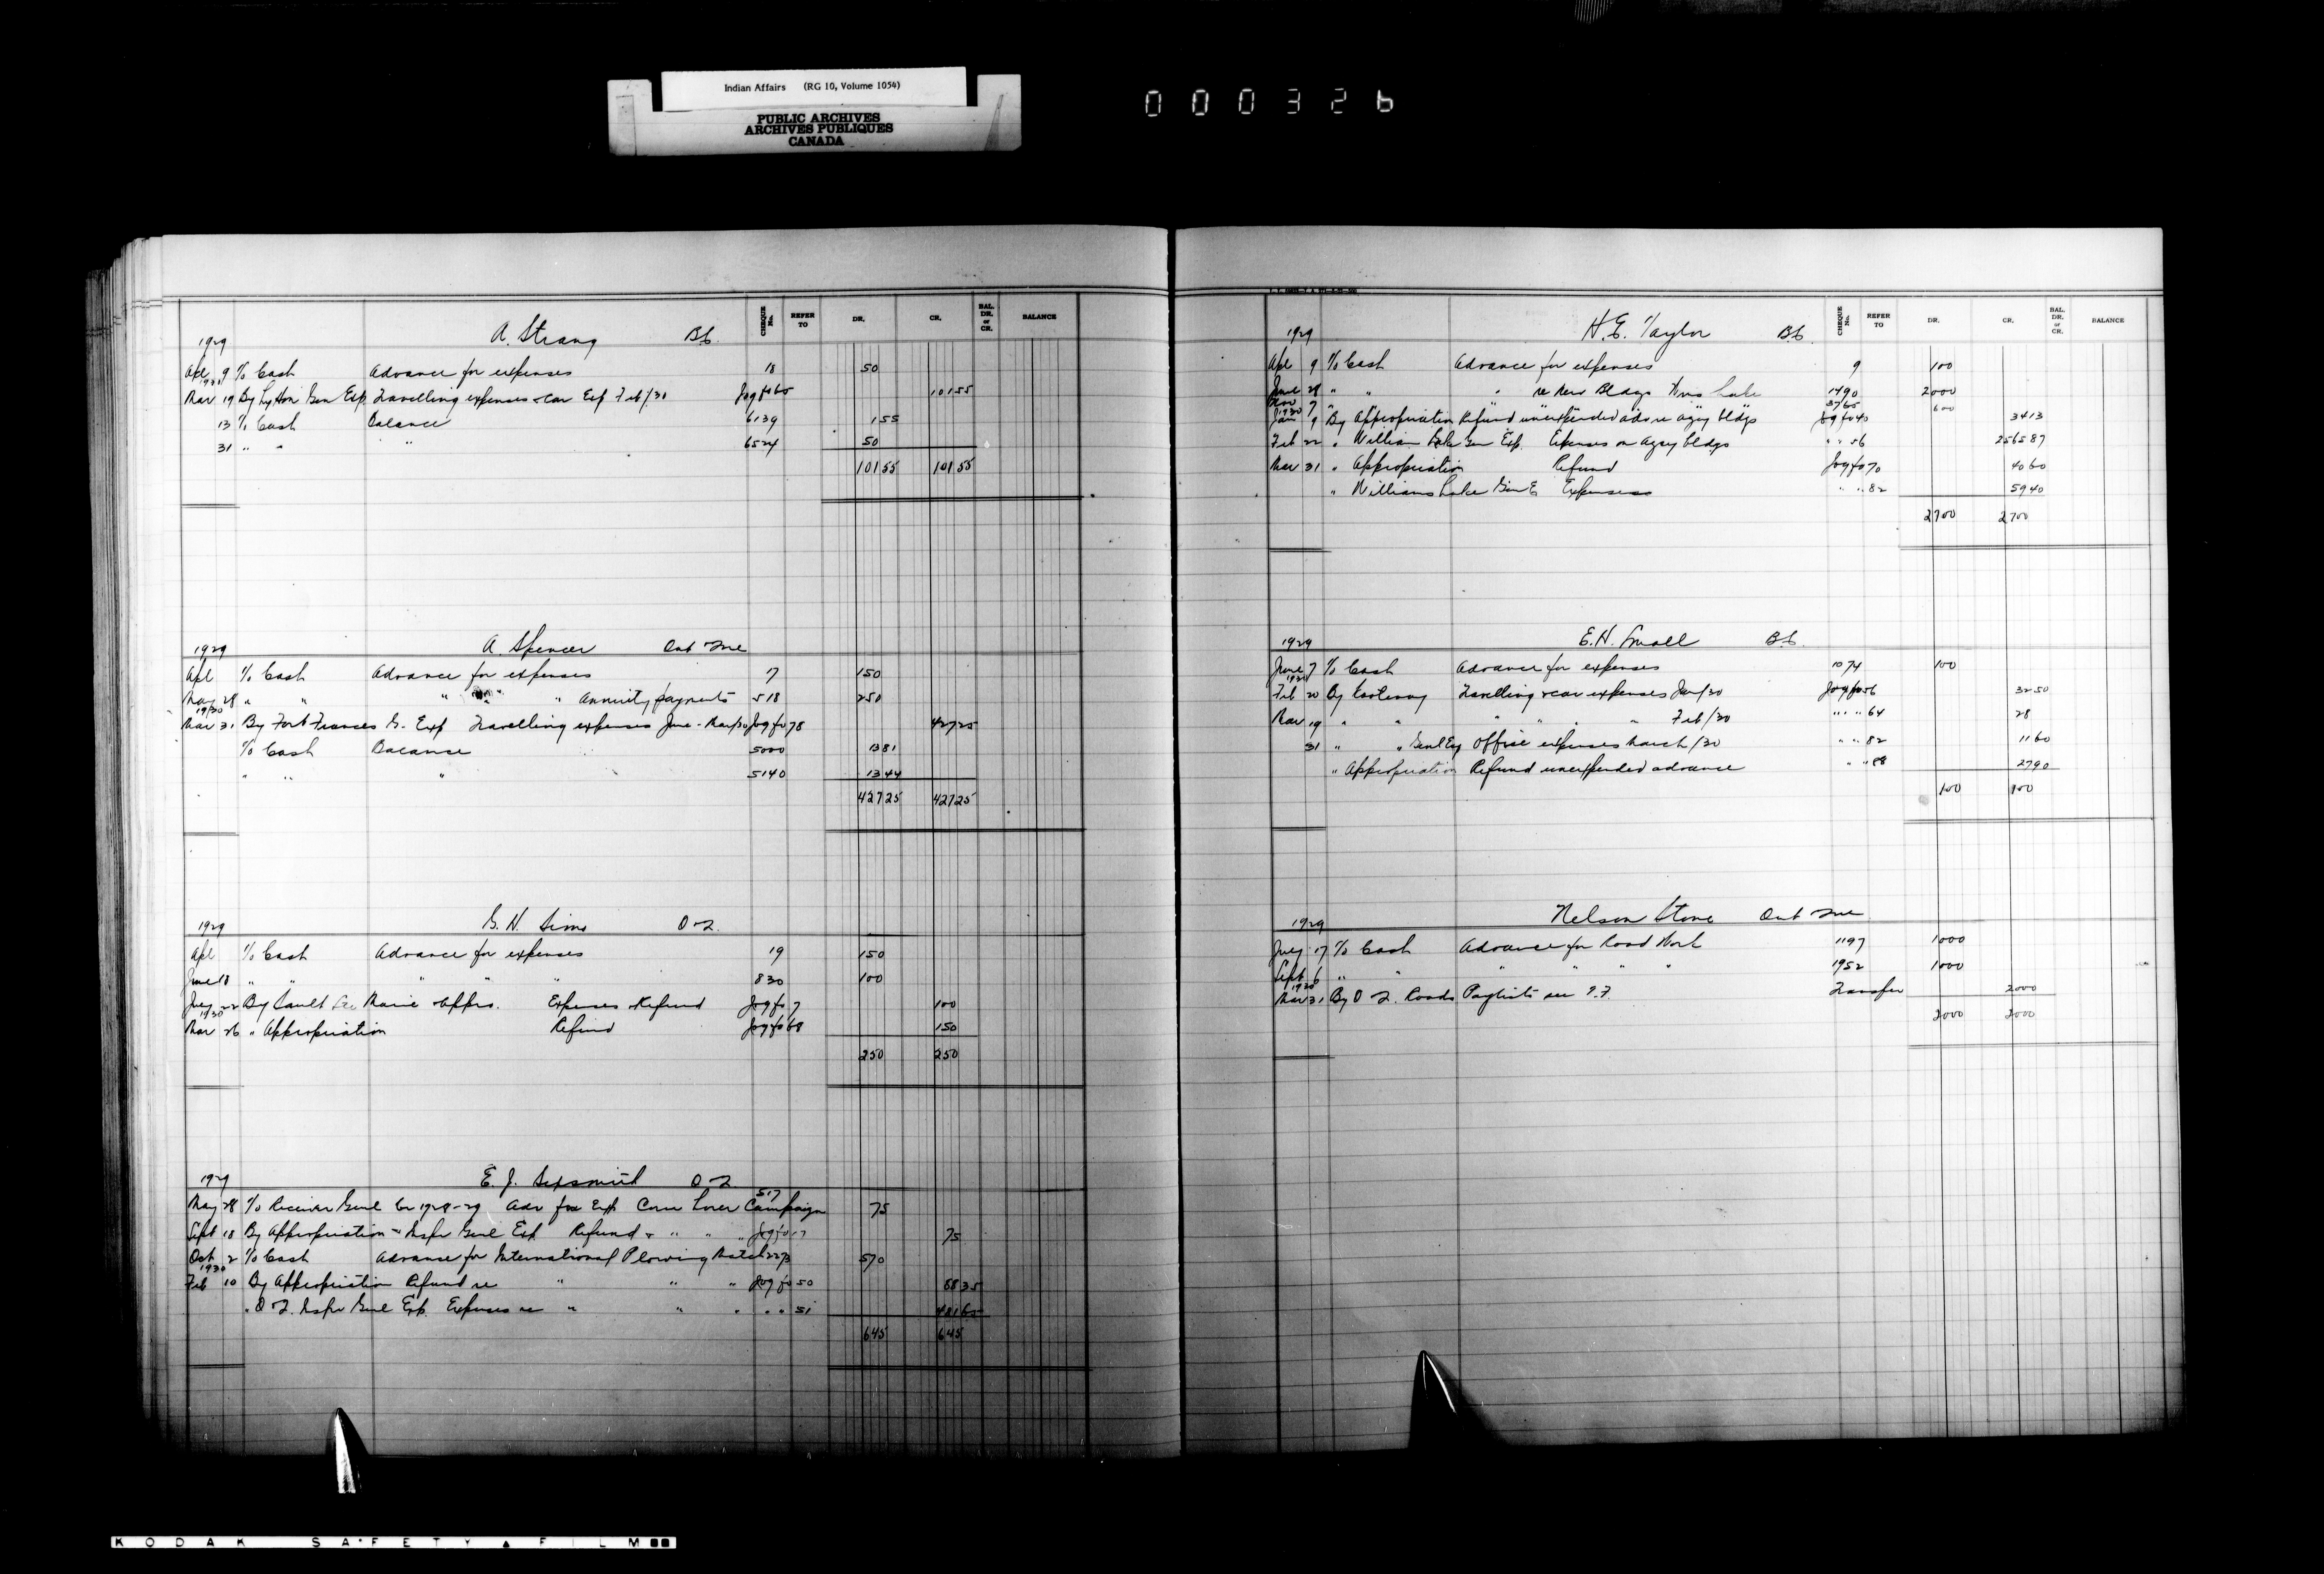 Indian Affairs (RG 10, Volume 1054)
PUBLIC ARCHIVES
ARCHIVES PUBLIQUES
CANADA
000326
CHEQUE No. REFER TO DR. CR. BAL. DR. or CR. BALANCE
1929 A. Strang B.C.
Apl 9 To Cash Advance for expenses 18 50
1930
Mar 19 By Lytton Gen Exp. Travelling expenses & car Exp Feb/30 Jog fo 65 101 55
13 To Cash Balance 6139 1 55
31 " " " 6524 50
101 55 101 55
1929 A. Spencer Ont Tre
Apl To Cash Advance for expenses 7 150
May 28 " " " " " Annuity payments 518 250
1930
Mar 31 By Fort Frances G. Exp Travelling expenses June - Mar/30 Jog fo 78 427 25
To Cash Balance 5000 13 81
" " " 5140 13 44
427 25 427 25
1929 G. H. Sims O-2
Apl To Cash Advance for expenses 19 150
June 18 " " " " " 830 100
July 22 By Sault Ste Marie Appro. Expenses Refund Jog fo 7 100
1930
Mar 26 " Appropriation Refund Jog fo 68 150
250 250
1929 E. J. Sexsmith O-2
May 28 To Receiver Genl Cr 1928-29 Adv for Exp Corn Borer Campaign 517 75
Sept 18 By Appropriation - Inspr Genl Exp Refund " " " Jog fo 17 75
Oct 2 To Cash Advance for International Plowing Match 2273 570
1930
Feb 10 By Appropriation Refund re " " " Jog fo 50 88 35
" O-2. Inspr Genl Exp. Expenses re " " " " " 51 481 65
645 645
CHEQUE No. REFER TO DR. CR. BAL. DR. or CR. BALANCE
1929 H. E. Taylor B.C.
Apl 9 To Cash Advance for expenses 9 100
June 28 " " " re New Bldgs Wms Lake 1490 2000
Nov 7 " " " " " " 3765 600
1930
Jan 9 By Appropriation Refund unexpended adv re agey bldgs Jog fo 40 34 13
Feb 22 " William Lake Gen Exp. Expenses on Agey bldgs " " 56 2565 87
Mar 31 " Appropriation Refund Jog fo 70 40 60
" Williams Lake Gen E Expenses " " 82 59 40
2700 2700
1929 E. H. Small B.C.
June 7 To Cash Advance for expenses 1074 100
1930
Feb 20 By Kootenay Travelling & car expenses Jan/30 Jog fo 56 32 50
Mar 19 " " " " " Feb/30 " " 64 28
31 " " Genl Ex Office expenses March/30 " " 82 11 60
" Appropriation Refund unexpended advance " " 88 27 90
100 100
1929 Nelson Stone Ont Tre
July 17 To Cash Advance for Road Work 1197 1000
Sept 6 " " " " " " 1952 1000
1930
Mar 31 By O-2. Roads Paylists Transfer 2000
2000 2000
KODAK SAFETY FILM